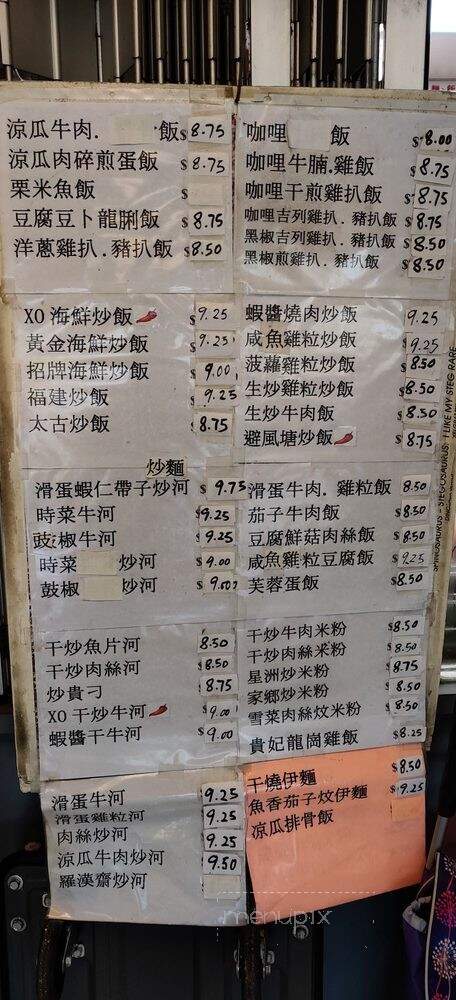 涼瓜牛肉. 飯 $8.75
涼瓜肉碎煎蛋飯 $8.75
栗米魚飯 $
豆腐豆卜龍脷飯 $8.75
洋蔥雞扒.豬扒飯 $8.50
咖哩 飯 $8.00
咖哩牛腩.雞飯 $8.75
咖哩干煎雞扒飯 $8.75
咖哩吉列雞扒.豬扒飯 $8.75
黑椒吉列雞扒.豬扒飯 $8.50
黑椒煎雞扒.豬扒飯 $8.50
XO海鮮炒飯 $9.25
黃金海鮮炒飯 $9.25
招牌海鮮炒飯 $9.00
福建炒飯 $9.25
太古炒飯 $8.75
蝦醬燒肉炒飯 9.25
咸魚雞粒炒飯 $9.25
菠蘿雞粒炒飯 $8.50
生炒雞粒炒飯 $8.50
生炒牛肉飯 $8.50
避風塘炒飯 $8.75
炒麵
滑蛋蝦仁帶子炒河 $9.75
時菜牛河 $9.25
豉椒牛河 $9.25
時菜 炒河 $9.00
鼓椒 炒河 $9.00
滑蛋牛肉.雞粒飯 8.50
茄子牛肉飯 $8.50
豆腐鮮菇肉絲飯 $8.50
咸魚雞粒豆腐飯 $9.25
芙蓉蛋飯 $8.50
干炒魚片河 8.50
干炒肉絲河 $8.50
炒貴刁 $8.75
XO干炒牛河 $9.00
蝦醬干牛河 $9.00
干炒牛肉米粉 $8.50
干炒肉絲米粉 $8.50
星洲炒米粉 $8.75
家鄉炒米粉 $8.50
雪菜肉絲炆米粉 $8.50
貴妃龍崗雞飯 $8.25
滑蛋牛河 9.25
滑蛋雞粒河 9.25
肉絲炒河 9.25
涼瓜牛肉炒河 9.50
羅漢齋炒河
干燒伊麵 $8.50
魚香茄子炆伊麵 $9.25
涼瓜排骨飯
SPINOSAURUS - STEGOSAURUS: I LIKE MY STEG RARE
menupix